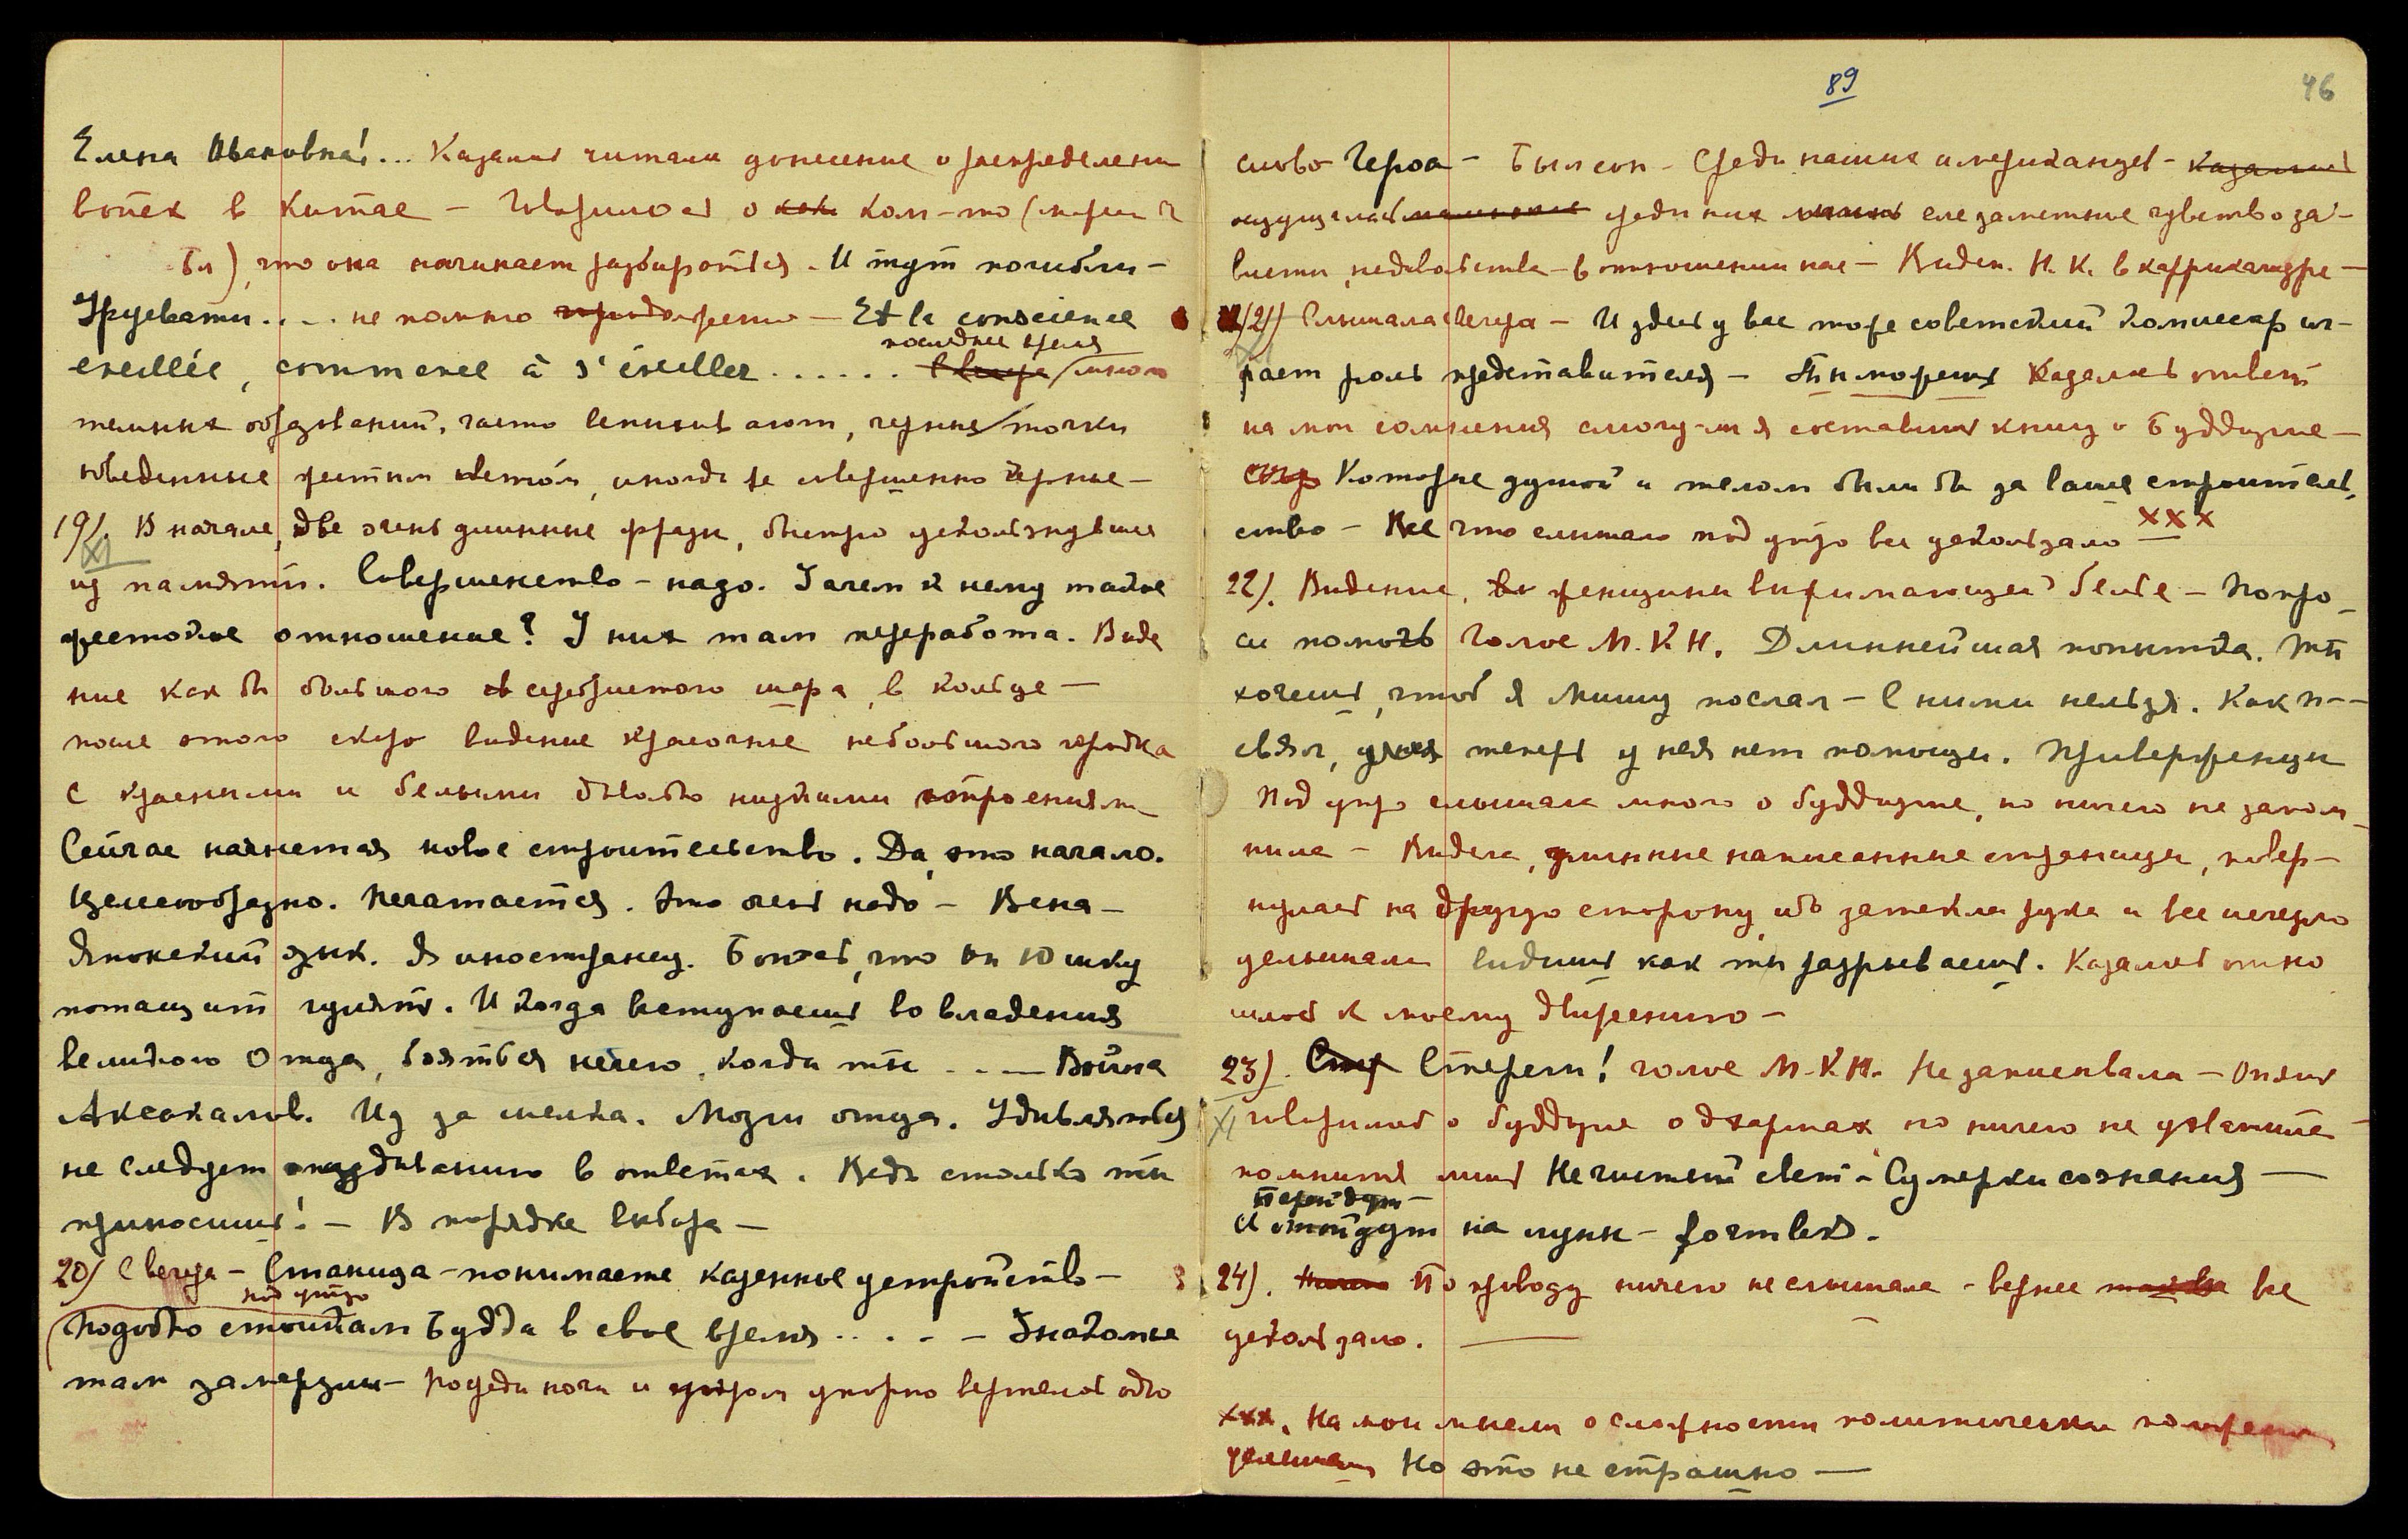 Елена Ивановна!... Казалось читали донесение о распределении
войск в Китае – Говорилось о ком-то (
), что она начинает разбираться. И тут погибли –
Зруеваты.... не помню – Et la conscience
последнее время
eveillée, commence à s'éveiller......
темных образований, часто вспыхивают, черные точки
обведенные желтым светом, иногда же совершенно черные –
19). В начале, две очень длинные фразы, быстро ускользнувшие
XI
из памяти. Совершенство – надо. Зачем к нему такое
жестокое отношение? У них там переработа. Виде
ние как бы большого серебристого шара, в кольце –
после этого скоро видение красочные небольшого городка
с красными и белыми довольно низкими строениями
Сейчас начнется новое строительство. Да, это начало.
Целесообразно. Печатается. Это очень надо – Вена –
Японский язык. Я иностранец. Боюсь, что он Юшку
потащит гулять. И когда вступаешь во владения
великого Отца, бояться нечего, когда ты ... – Война
Аксакалов. Из за шелка. Мозги отца. Удивляться
не следует опаздыванию в ответах. Ведь столько ты
приносишь! – В порядке выбора –
20) С вечера – Станица – понимаете казенное устройство –
под утро
Подобно стоикам Будда в свое время..... – Знакомые
там замерзли – посреди ночи и утром упорно вертелось одно
89
46
слово Героа – Был сон – Среди наших американцев – казалось
ощущалось среди них еле заметное чувство за-
висти, недовольства – в отношении нас – Виден. Н. К. в
21) Слышала вчера – И здесь у вас тоже советский комиссар иг-
XI
рает роль представителя – Казалось ответ
на мои сомнения смогу-ли я составить книгу о Буддизме –
Которые душой и телом были бы за ваше строитель,
ство – Все что слышала под утро все ускользало xxx
22). Видение, женщины выжимающей белье – Попро-
си помочь голос М. К. Н. Длиннейшая попытка. Ты
хочешь, чтоб я Мишу послал – С ними нельзя. Как п--
связи, теперь у нея нет помощи. Приверженцы
Под утро слышала много о буддизме, но ничего не запом-
нила – Видела, длинные написанные страницы, повер-
нулась на другую сторону, ибо затекла рука и все исчезло
услышала видишь как ты разрываешь. Казалось отно
силось к моему движению –
23). Стереги! голос М. К. Н. Не записывала – Опять
XI
говорилось о буддизме о дхармах но ничего не уловила
помнится лишь Нечистый свет – Сумерки сознания –
Перейдут –
И отойдут на луны – formless.
24). По приводу ничего не слышала – вернее все
ускользало.
xxx. На мои мысли о сложности политических
услышала Но это не страшно –